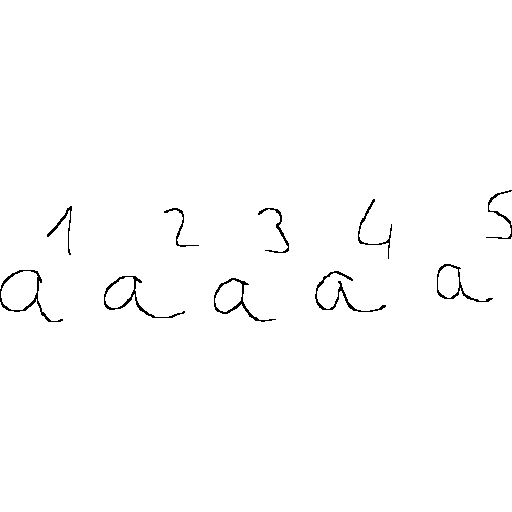 a¹ a² a³ a⁴ a⁵